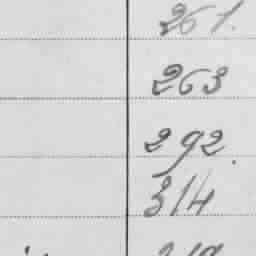 261.
263
292.
314